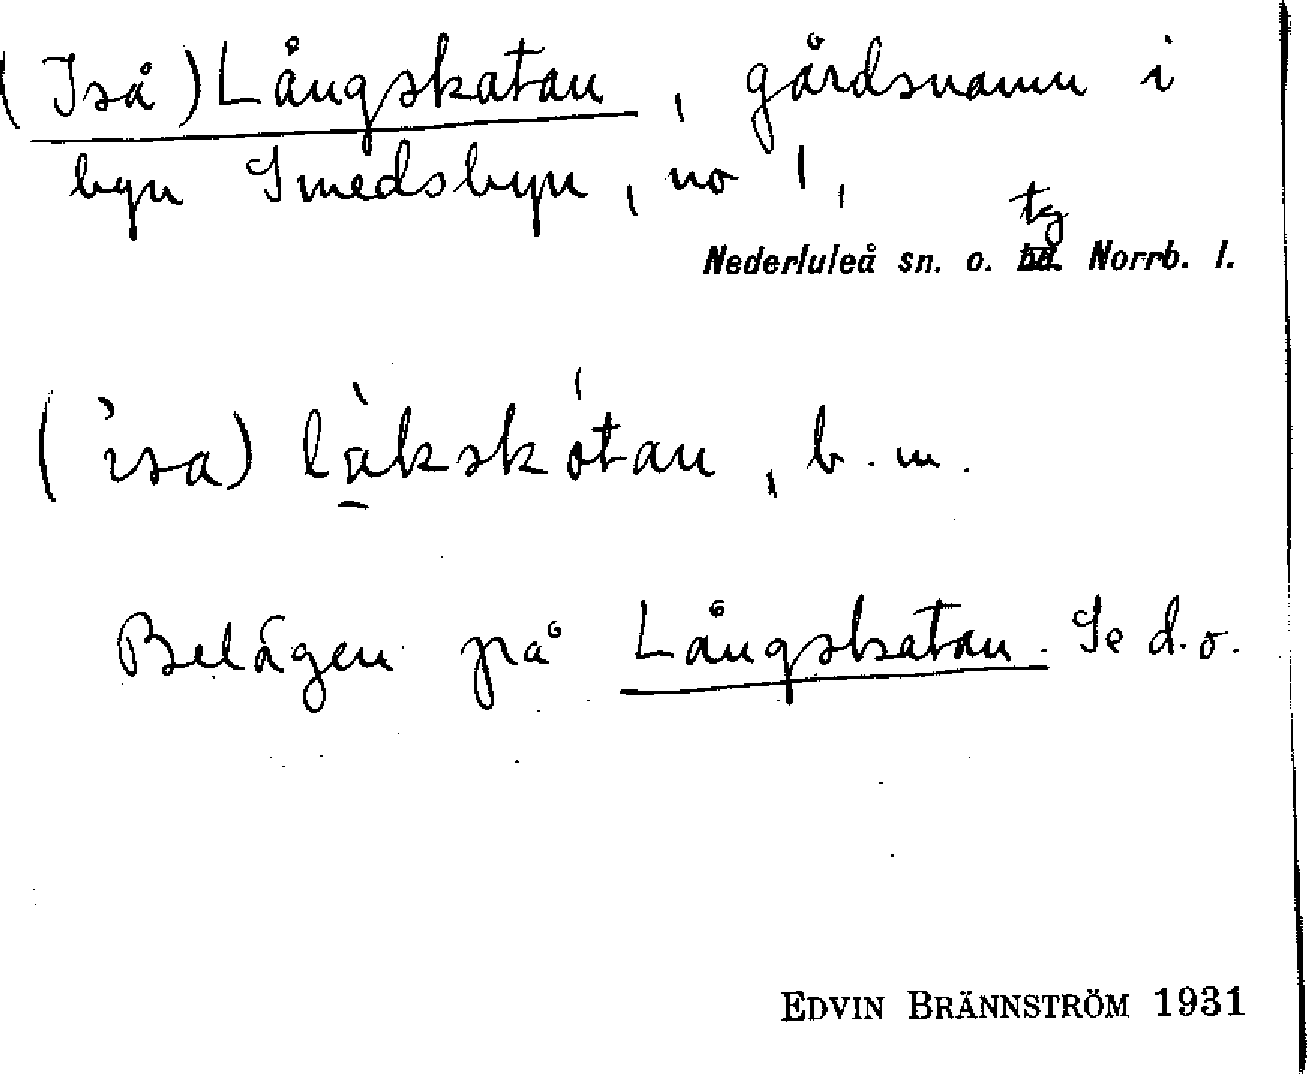 (Iså) Långskatan, gårdsnamn i
byn Smedsbyn, no 1,
tg
Nederluleå sn. o. hd. Norrb. l.
(ìsa) làkskótan, b. m.
Belägen på Långskatan. Se d. o.
EDVIN BRÄNNSTRÖM 1931